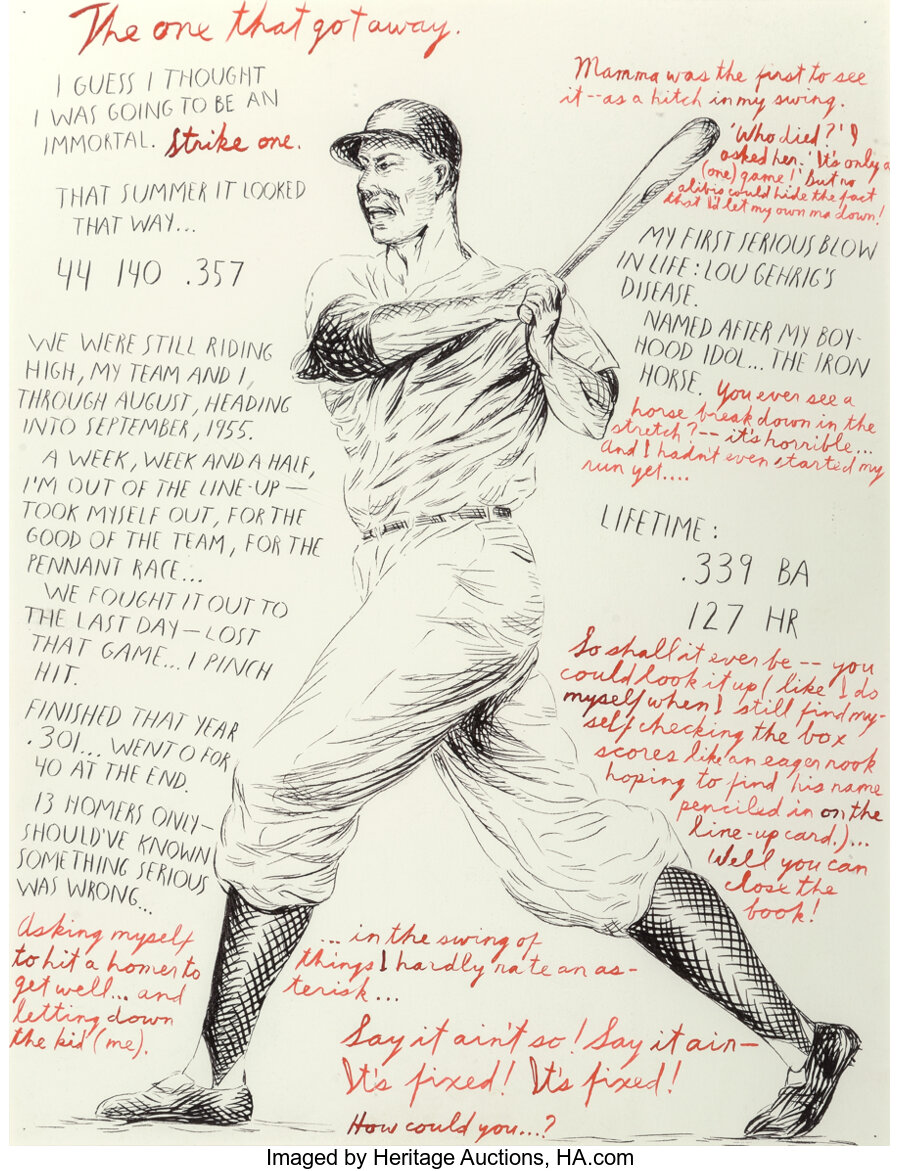 The one that got away.
I GUESS I THOUGHT
I WAS GOING TO BE AN
IMMORTAL. Strike one.
THAT SUMMER IT LOOKED
THAT WAY...
44 140 .357
WE WERE STILL RIDING
HIGH, MY TEAM AND I,
THROUGH AUGUST, HEADING
INTO SEPTEMBER, 1955.
A WEEK, WEEK AND A HALF,
I'M OUT OF THE LINE-UP—
TOOK MYSELF OUT, FOR THE
GOOD OF THE TEAM, FOR THE
PENNANT RACE...
WE FOUGHT IT OUT TO
THE LAST DAY—LOST
THAT GAME... I PINCH
HIT.
FINISHED THAT YEAR
.301... WENT 0 FOR
40 AT THE END.
13 HOMERS ONLY—
SHOULD'VE KNOWN
SOMETHING SERIOUS
WAS WRONG...
Asking myself
to hit a homer to
get well... and
letting down
the kid (me).
Mamma was the first to see
it--as a hitch in my swing.
'Who died?' I
asked her. 'It's only a
(one) game!' But no
alibis could hide the fact
that I'd let my own ma down!
MY FIRST SERIOUS BLOW
IN LIFE: LOU GEHRIG'S
DISEASE.
NAMED AFTER MY BOY-
HOOD IDOL... THE IRON
HORSE. You ever see a
horse break down in the
stretch?-- it's horrible...
And I hadn't even started my
run yet....
LIFETIME:
.339 BA
127 HR
So shall it ever be-- you
could look it up (like I do
myself when I still find my-
self checking the box
scores like an eager rook
hoping to find his name
penciled in on the
line-up card.)...
Well you can
close the
book!
... in the swing of
things I hardly rate an as-
terisk...
Say it ain't so! Say it ain—
It's fixed! It's fixed!
How could you...?
Imaged by Heritage Auctions, HA.com